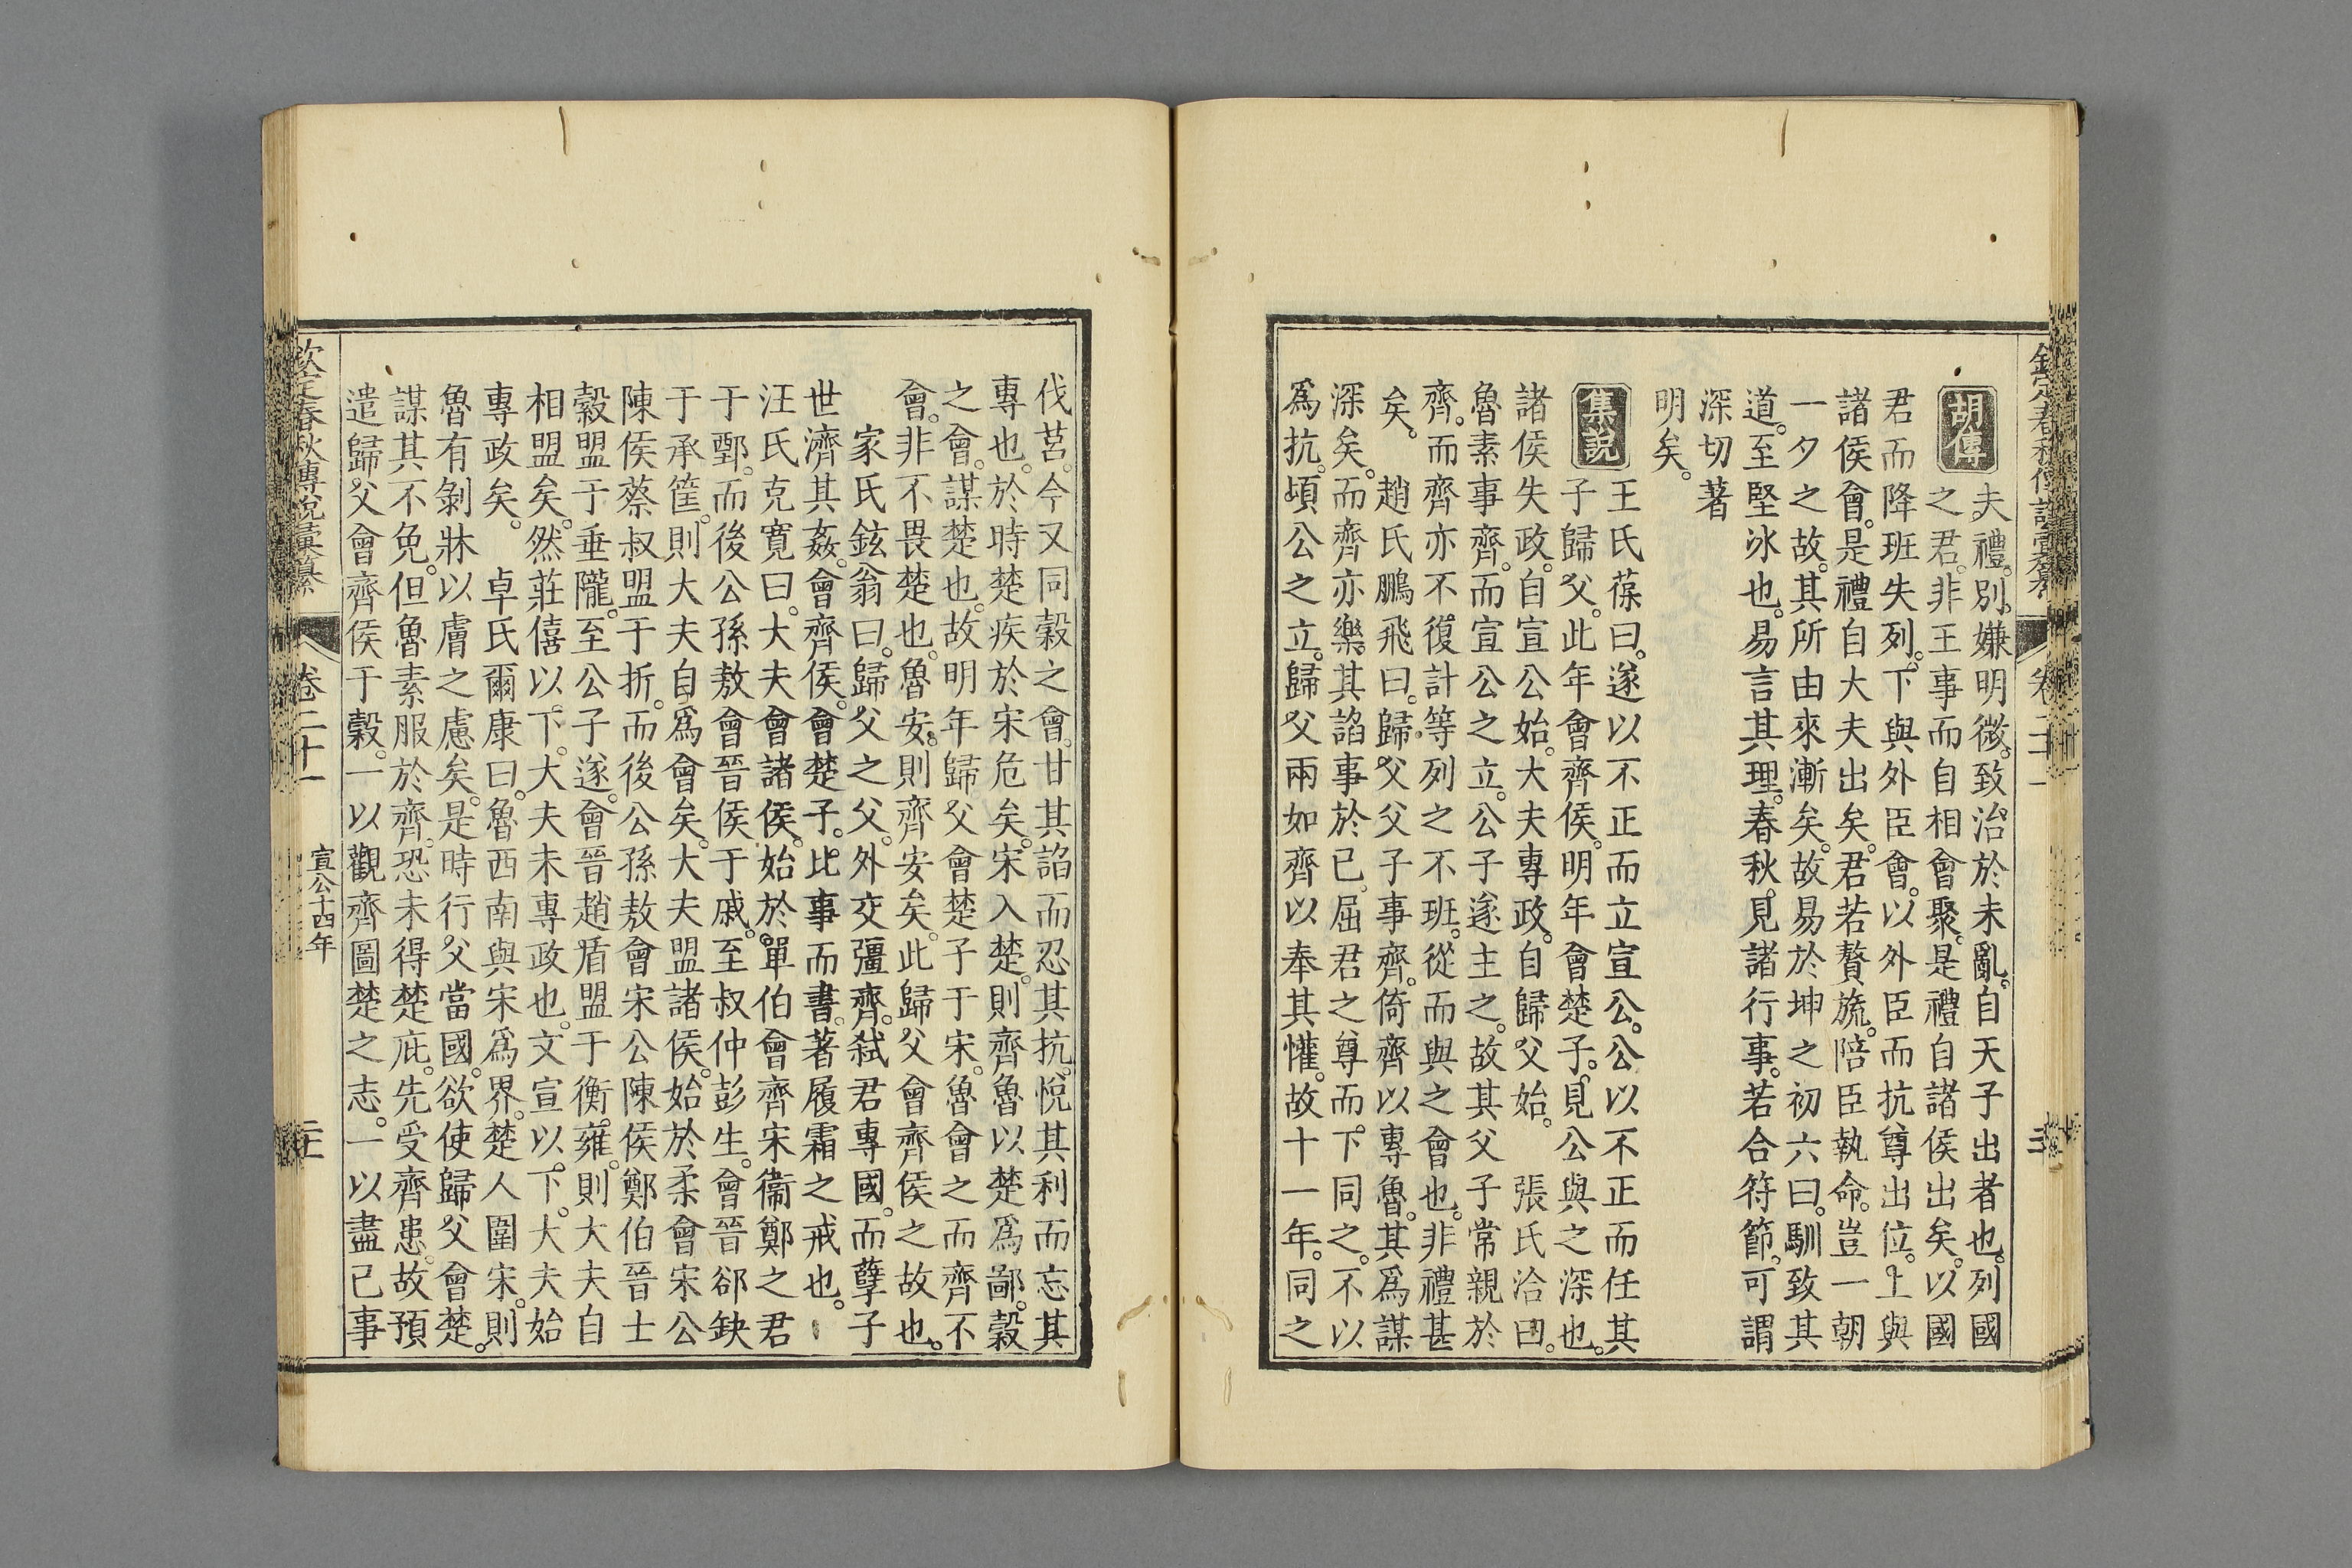 欽定春秋傳說彙纂 卷二十一
胡傳 夫禮。別嫌明微。致治於未亂。自天子出者也。列國
之君。非王事而自相會聚。是禮自諸侯出矣。以國
君而降班失列。下與外臣會。以外臣而抗尊出位。上與
諸侯會。是禮自大夫出矣。君若贅旒。陪臣執命。豈一朝
一夕之故。其所由來漸矣。故易於坤之初六曰。馴致其
道。至堅冰也。易言其理。春秋見諸行事。若合符節。可謂
深切著
明矣。
集說 王氏葆曰。遂以不正而立宣公。公以不正而任其
子歸父。此年會齊侯。明年會楚子。見公與之深也。
諸侯失政。自宣公始。大夫專政。自歸父始。 張氏洽曰。
魯素事齊。而宣公之立。公子遂主之。故其父子常親於
齊。而齊亦不復計等列之不班。從而與之會也。非禮甚
矣。 趙氏鵬飛曰。歸父父子事齊。倚齊以專魯。其爲謀
深矣。而齊亦樂其諂事於已。屈君之尊而下同之。不以
爲抗。頃公之立。歸父兩如齊以奉其懽。故十一年。同之
伐莒。今又同穀之會。甘其諂而忍其抗。悅其利而忘其
專也。於時楚疾於宋危矣。宋入楚。則齊魯以楚爲鄙。穀
之會。謀楚也。故明年歸父會楚子于宋。魯會之而齊不
會。非不畏楚也。魯安。則齊安矣。此歸父會齊侯之故也。
家氏鉉翁曰。歸父之父。外交彊齊。弒君專國。而孽子
世濟其姦。會齊侯。會楚子。比事而書。著履霜之戒也。
汪氏克寬曰。大夫會諸侯。始於單伯會齊宋衞鄭之君
于鄄。而後公孫敖會晉侯于戚。至叔仲彭生。會晉郤缺
于承筐。則大夫自爲會矣。大夫盟諸侯。始於柔會宋公
陳侯蔡叔盟于折。而後公孫敖會宋公陳侯鄭伯晉士
穀盟于垂隴。至公子遂。會晉趙盾盟于衡雍。則大夫自
相盟矣。然莊僖以下。大夫未專政也。文宣以下。大夫始
專政矣。 卓氏爾康曰。魯西南與宋爲界。楚人圍宋。則
魯有剝牀以膚之慮矣。是時行父當國。欲使歸父會楚。
謀其不免。但魯素服於齊。恐未得楚庇。先受齊患。故預
遣歸父會齊侯于穀。一以觀齊圖楚之志。一以盡已事
欽定春秋傳說彙纂 卷二十一 宣公十四年